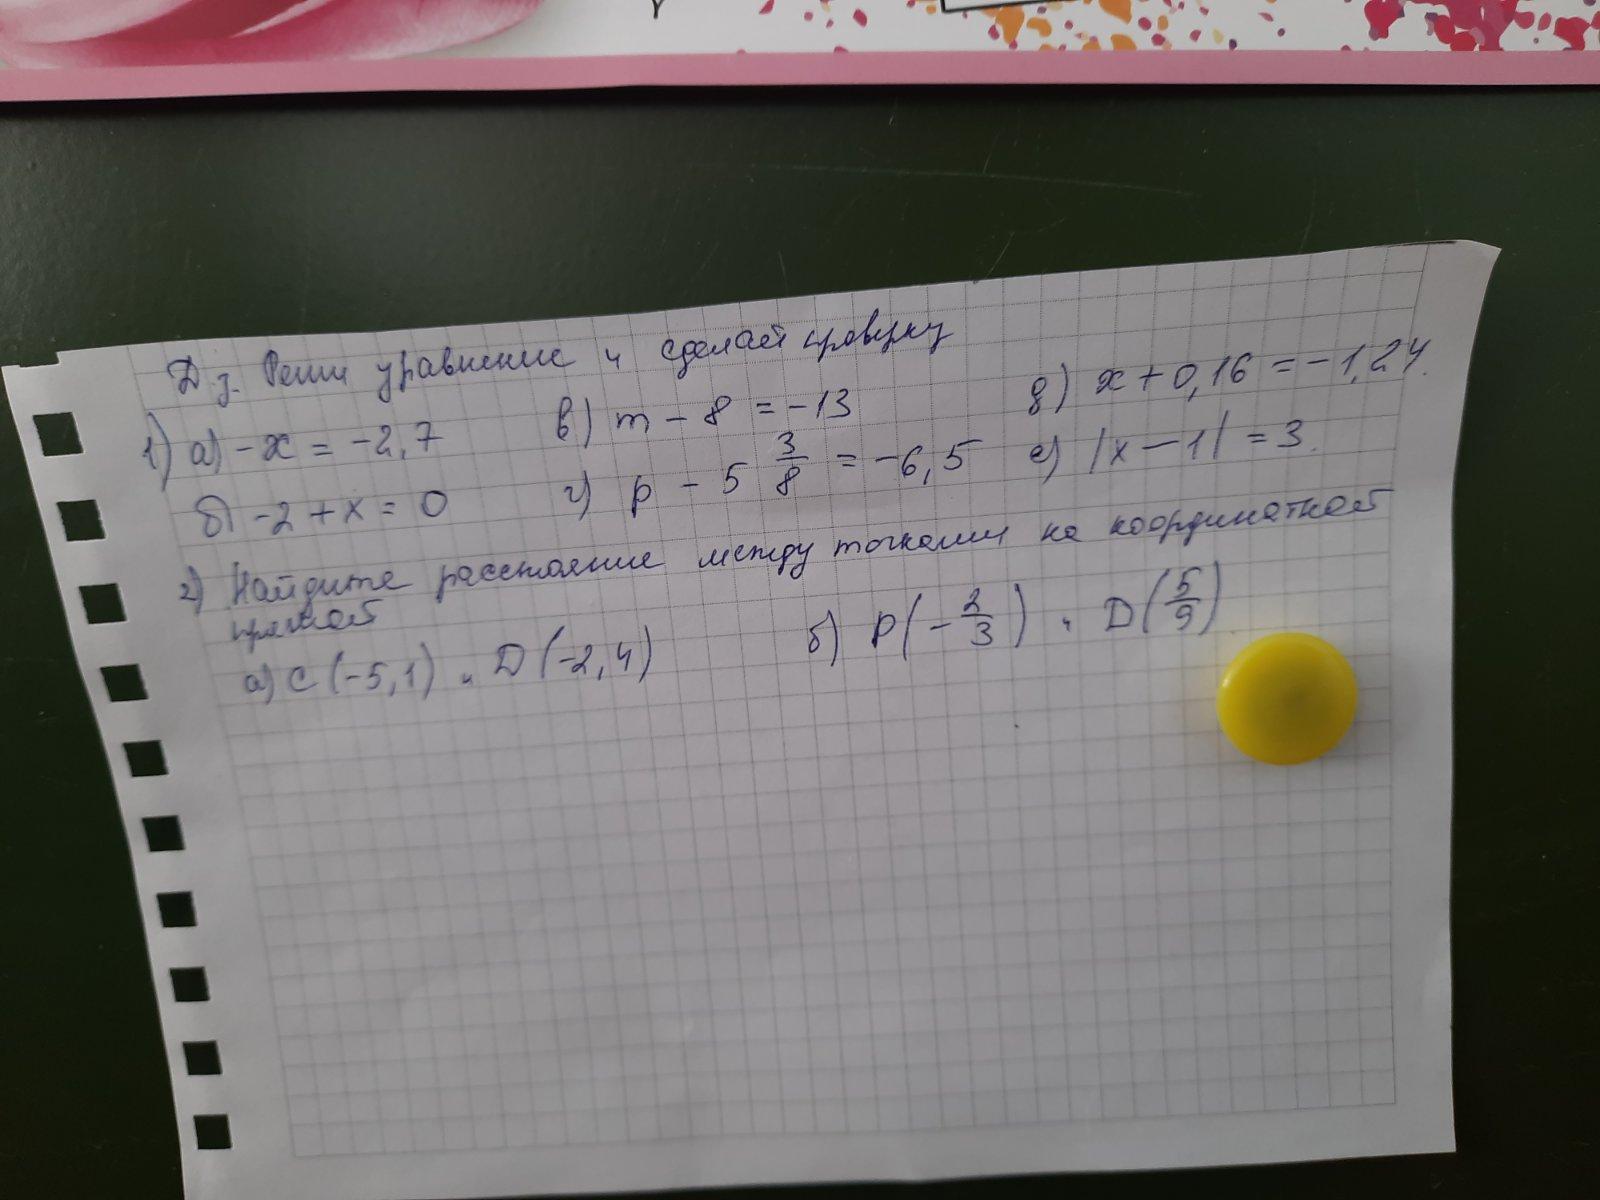 Д.з. Реши уравнение и сделай проверку
1) а) -x = -2,7 в) m - 8 = -13 д) x + 0,16 = -1,24.
б) -2 + x = 0 г) p - 5 3/8 = -6,5 е) |x - 1| = 3.
2) Найдите расстояние между точками на координатной
прямой
а) C (-5,1) и D (-2,4) б) P(-2/3) и D(5/9)